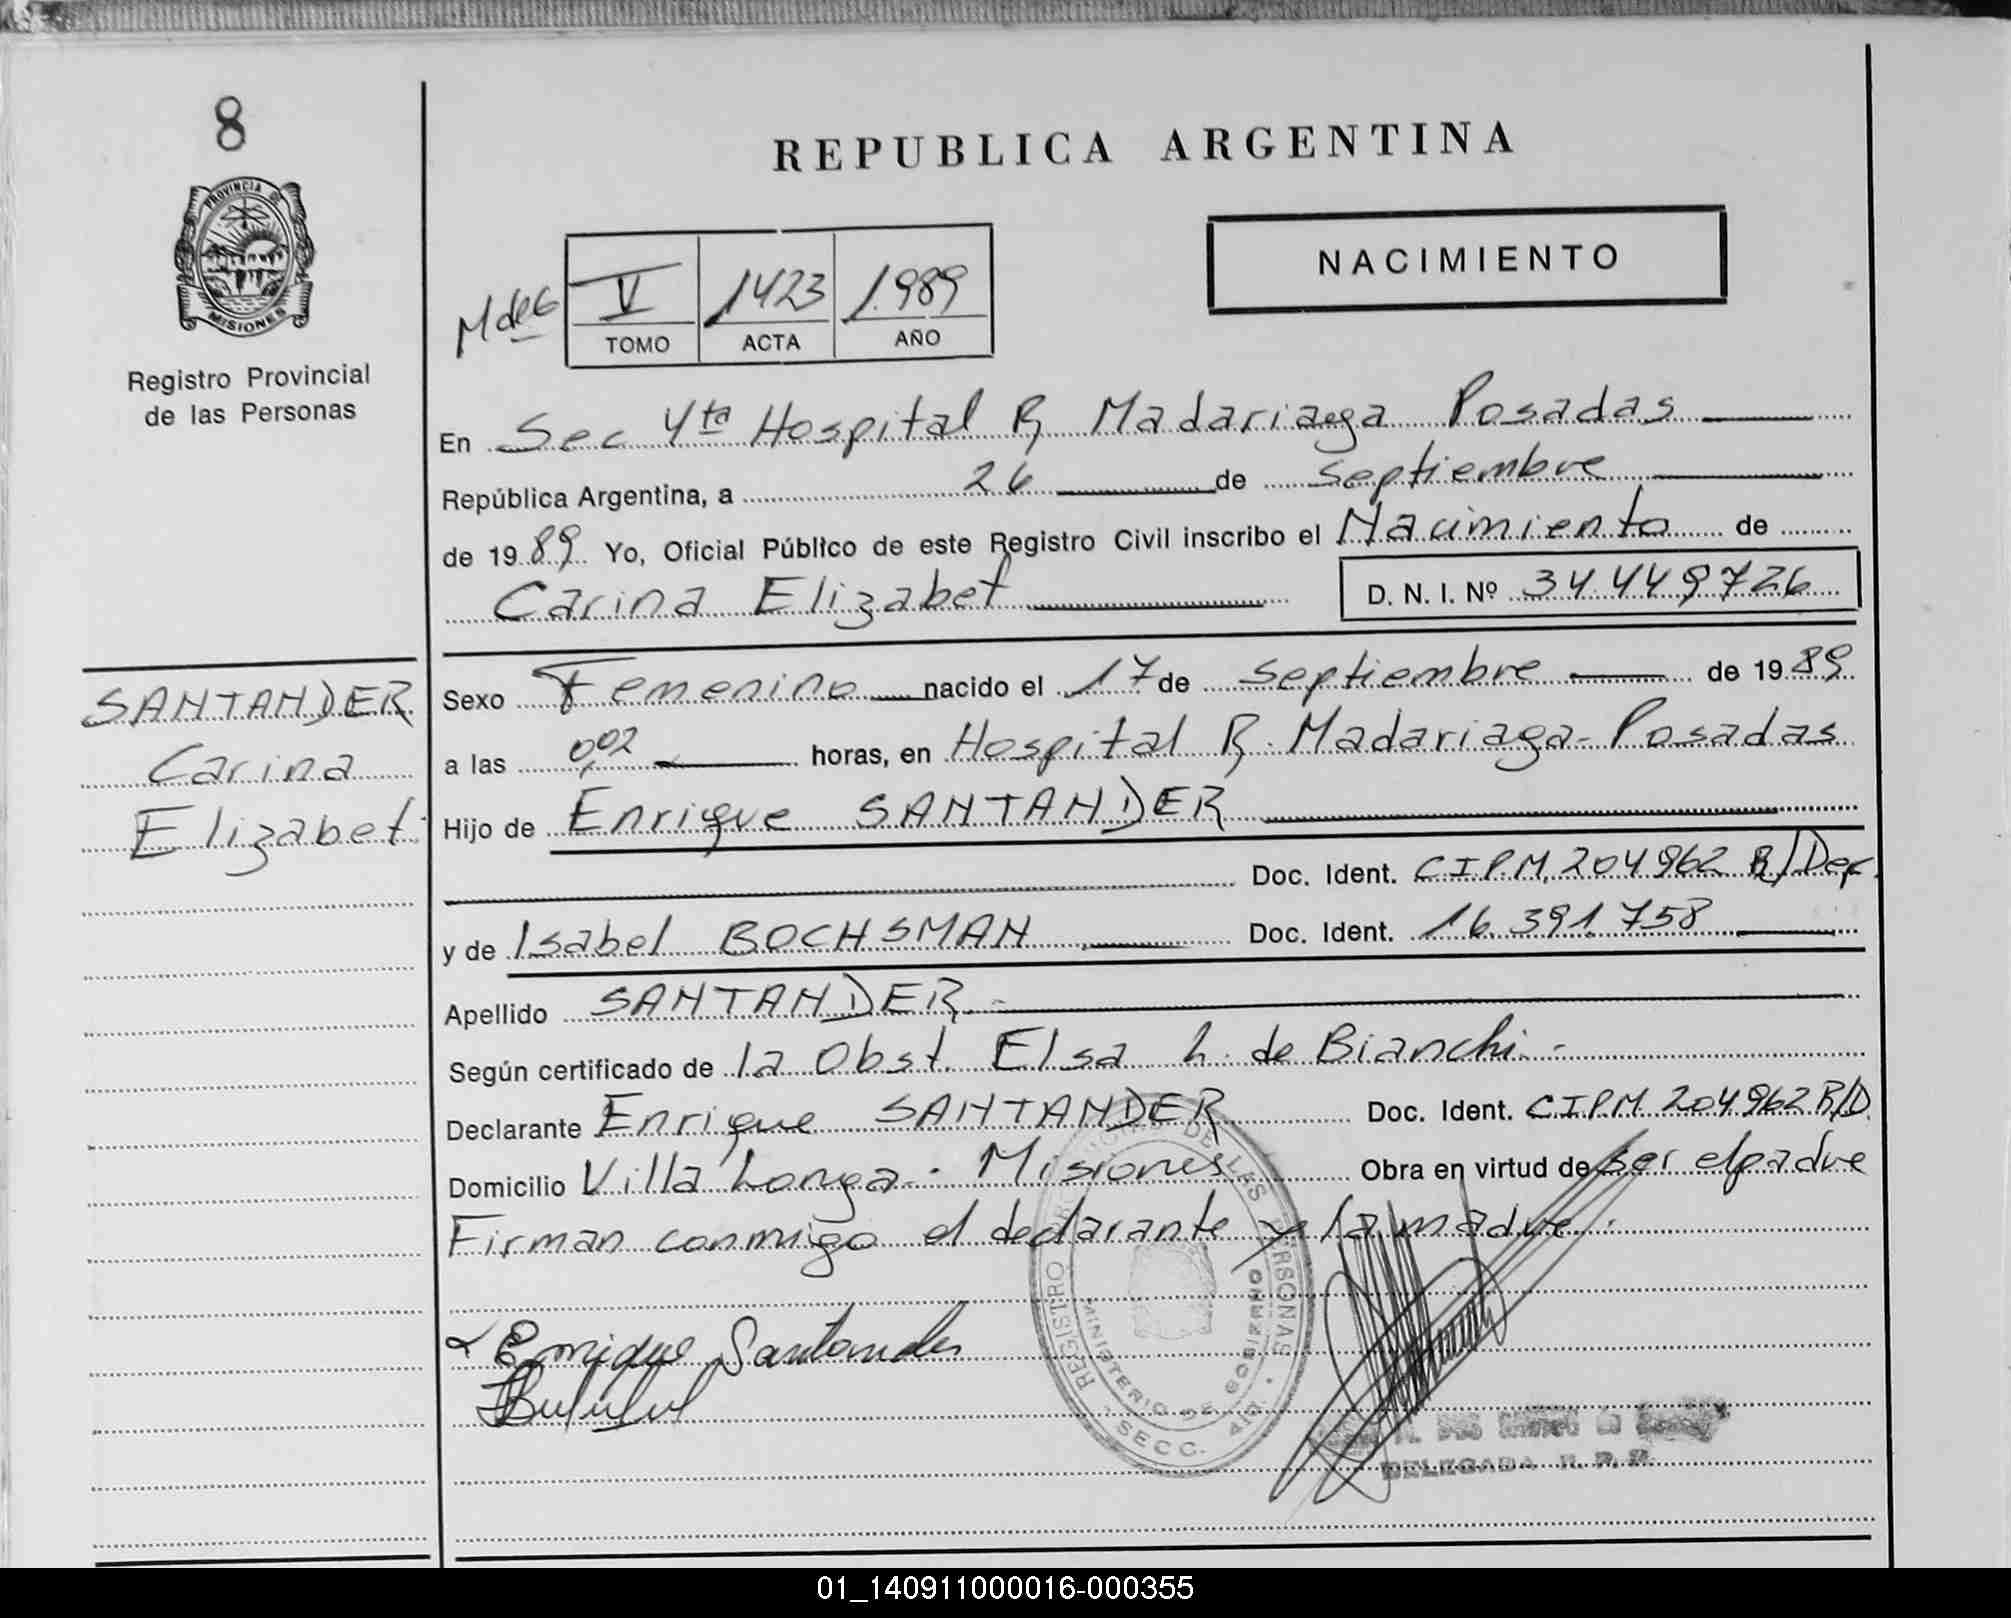 8
PROVINCIA DE
MISIONES
Registro Provincial
de las Personas
SANTANDER
Carina
Elizabet
REPUBLICA ARGENTINA
NACIMIENTO
V 1423 1.989
TOMO ACTA AÑO
En Sec 4ta Hospital R Madariaga Posadas
República Argentina, a 26 de Septiembre
de 1989 Yo, Oficial Público de este Registro Civil inscribo el Nacimiento de
Carina Elizabet D. N. I. Nº 34.449.726
Sexo Femenino nacido el 17 de Septiembre de 1989
a las 0,02 horas, en Hospital R. Madariaga - Posadas
Hijo de Enrique SANTANDER
Doc. Ident. C.I.P.M. 204962 R/Dep.
y de Isabel BOCHSMAN Doc. Ident. 16.391.758
Apellido SANTANDER.-
Según certificado de la Obst. Elsa L. de Bianchi.-
Declarante Enrique SANTANDER Doc. Ident. C.I.P.M 204962 R/D.
Domicilio Villa Longa - Misiones Obra en virtud de ser el padre
Firman conmigo el declarante y la madre.
Enrique Santander
REGISTRO DE LAS PERSONAS
MINISTERIO DE GOBIERNO
SECC. 4ta.
DELEGADA R. P. P.
01_140911000016-000355